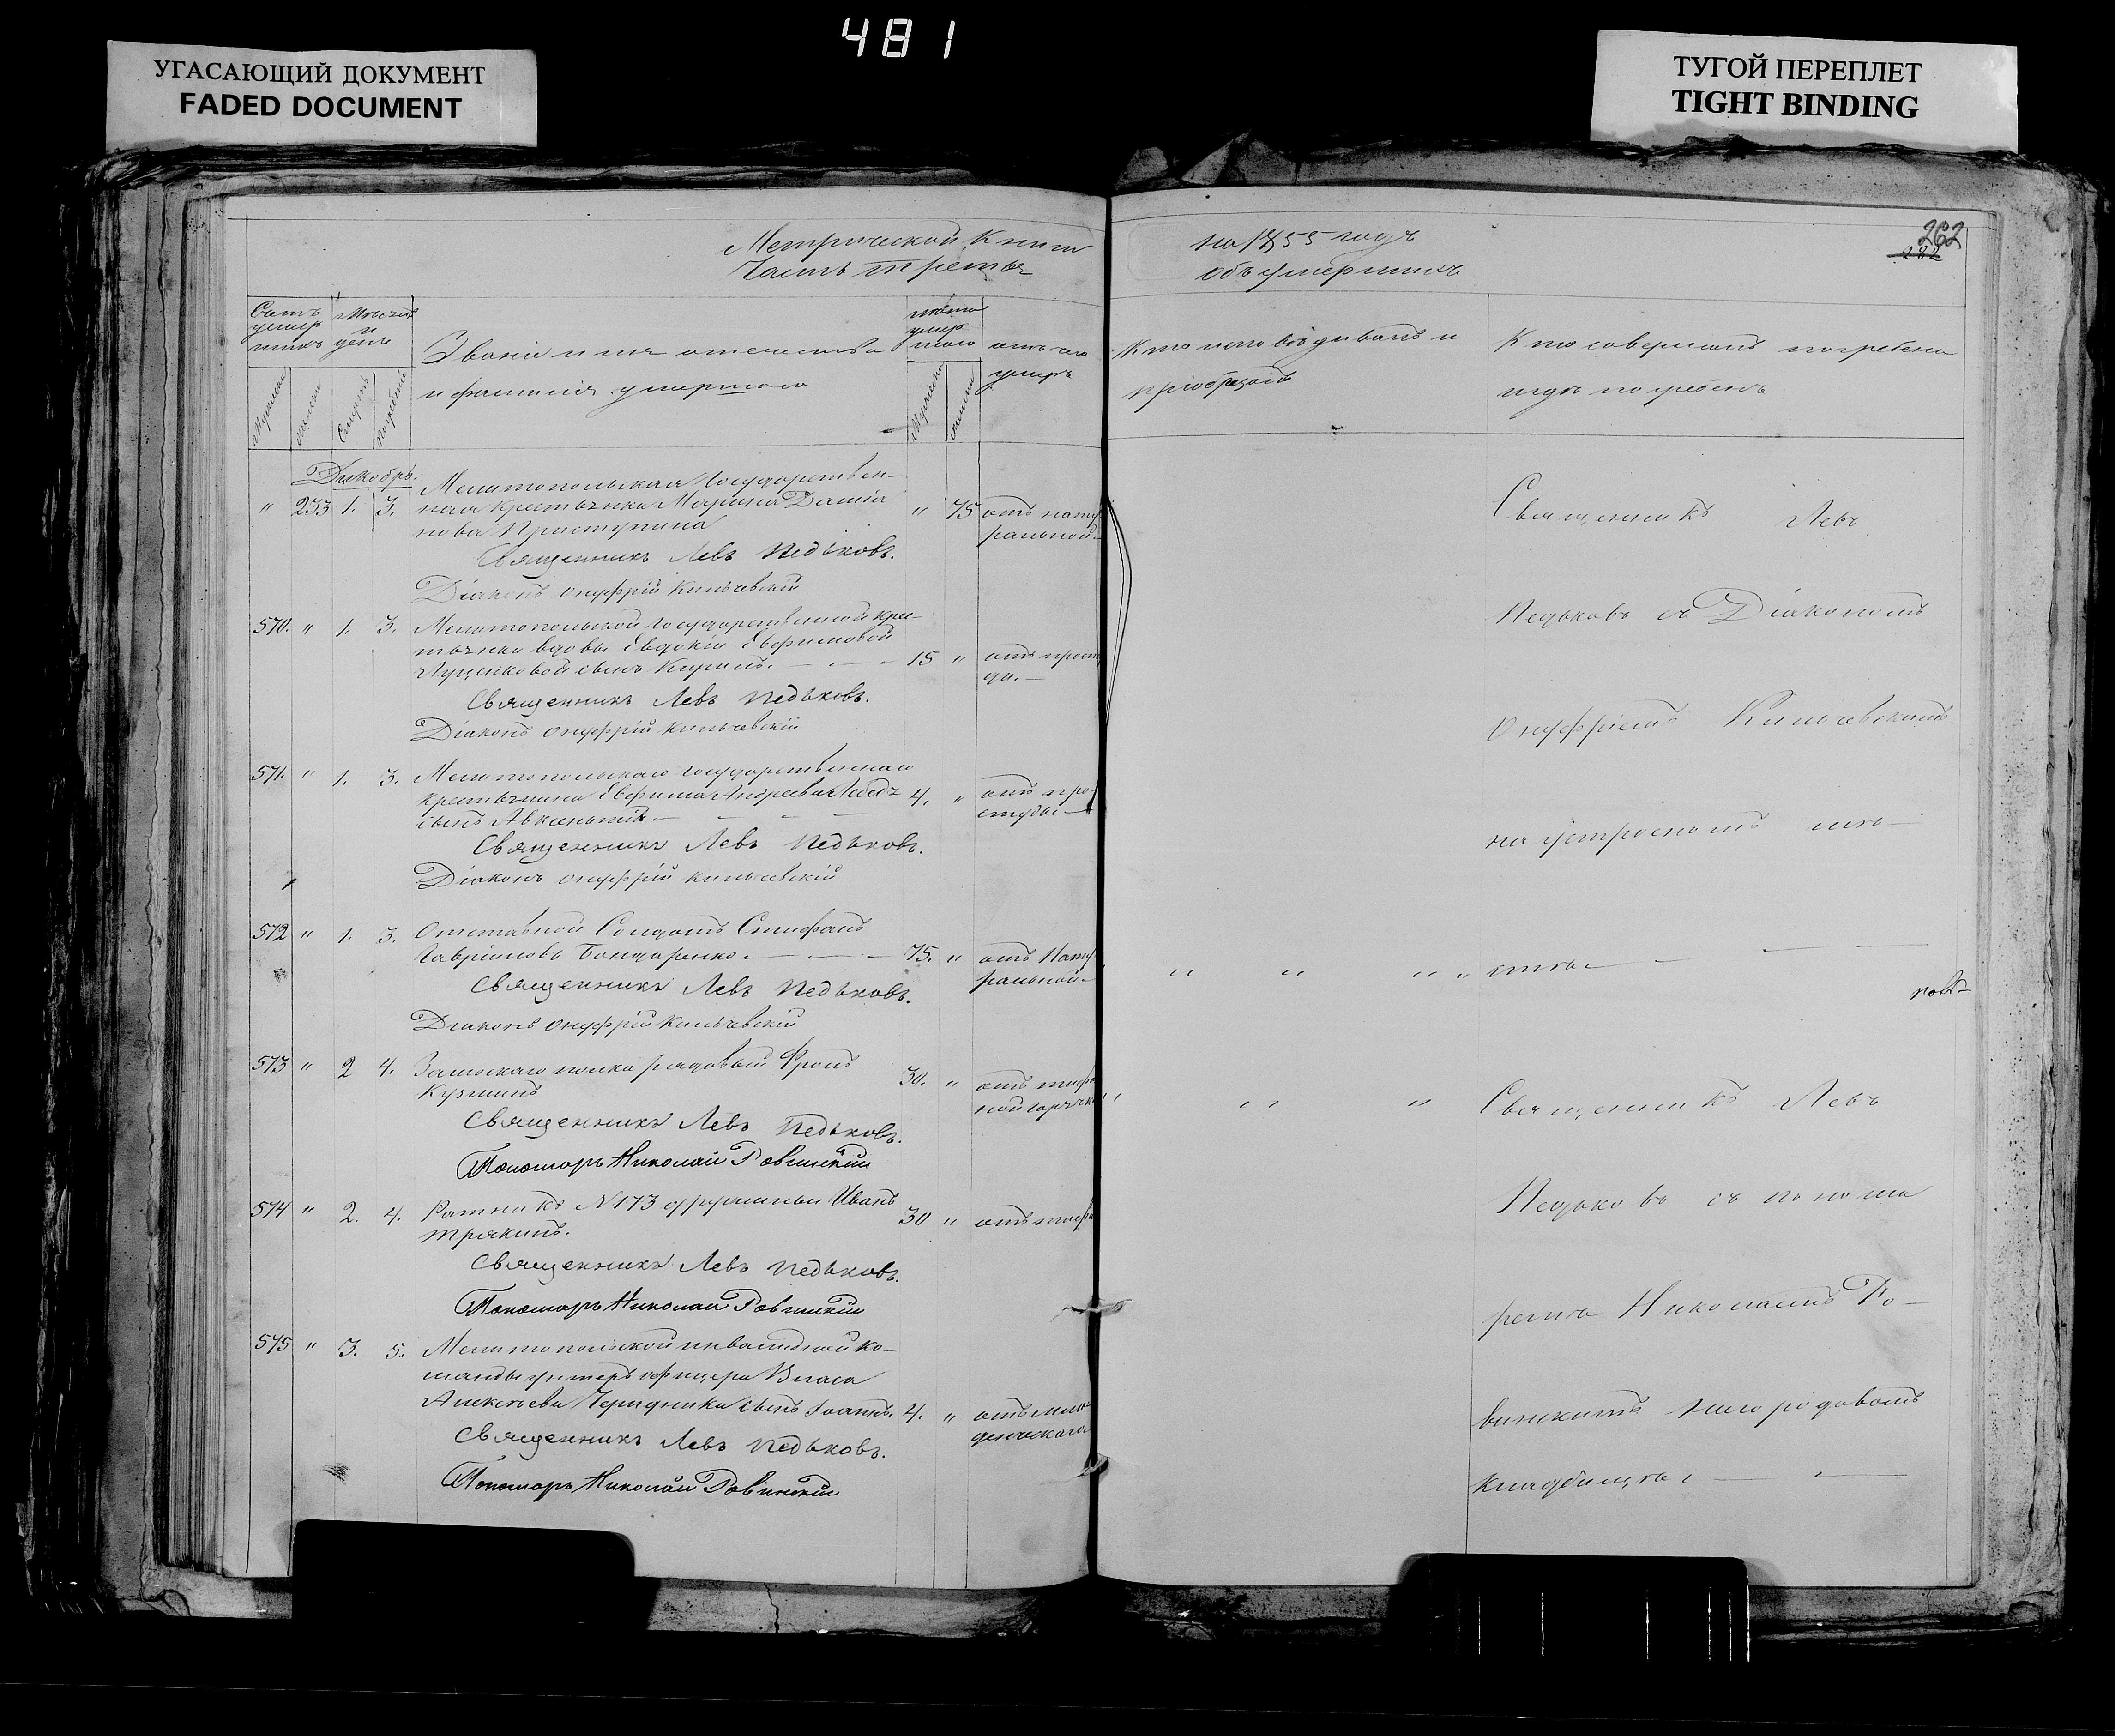 481
УГАСАЮЩИЙ ДОКУМЕНТ
FADED DOCUMENT
ТУГОЙ ПЕРЕПЛЕТ
TIGHT BINDING
262
282
Метрической Книги
Часть третья
на 1855 годъ
объ умершихъ
Счетъ умершихъ
Мѣсяцъ и день
Званіе имя отечество
и фамилія умершаго
лѣта умершаго
отъ чего умеръ
Кто исповѣдывалъ и
пріобщалъ
Кто совершалъ погребеніе
и гдѣ погребенъ
Декабрь.
" 233 1. 3. Мелитопольская Государствен-
ная Крестьянка Марина Даміа
нова Приступина " 75 отъ нату
ральной
Священникъ Левъ Педьковъ.
Діаконъ Онуфрій Кильчевскій
570. " 1. 3. Мелитопольской Государственной кре-
стьянки вдовы Евдокіи Евфимовой
Луценковой сынъ Кирилъ. 15 " отъ просту
ды.
Священникъ Левъ Педьковъ.
Діаконъ Онуфрій Кильчевскій
571. " 1. 3. Мелитопольскаго Государственнаго
крестьянина Евфима Андреева
сынъ 4. " отъ про-
студы
Священникъ Левъ Педьковъ.
Діаконъ Онуфрій Кильчевскій
572 " 1. 3. Отставной Солдатъ Стефанъ
Гавріиловъ Бондаренко. 75. " отъ Нату
ральной
Священникъ Левъ Педьковъ.
Діаконъ Онуфрій Кильчевскій
573 " 2 4. Замоскаго полка рядовый Фролъ
Кузминъ 30. " отъ тифоз
ной горячки
Священникъ Левъ Педьковъ.
Пономарь Николай Ровинскій
574 " 2. 4. Ратникъ N 173 дружины Иванъ
Трякинъ. 30 " отъ тифа
Священникъ Левъ Педьковъ.
Пономарь Николай Ровинскій
575 " 3. 5. Мелитопольской инвалидной ко-
манды унтеръ офицера Власа
Алексѣева Чередника сынъ Іоаннъ. 4. " отъ мла
денческаго
Священникъ Левъ Педьковъ.
Пономарь Николай Ровинскій
Священникъ Левъ
Педьковъ съ Діакономъ
Онуфріемъ Кильчевскимъ
на устроеномъ мѣ-
стѣ
Священникъ Левъ
Педьковъ съ понома
ремъ Николаемъ Ро-
винскимъ на городовомъ
кладбищѣ